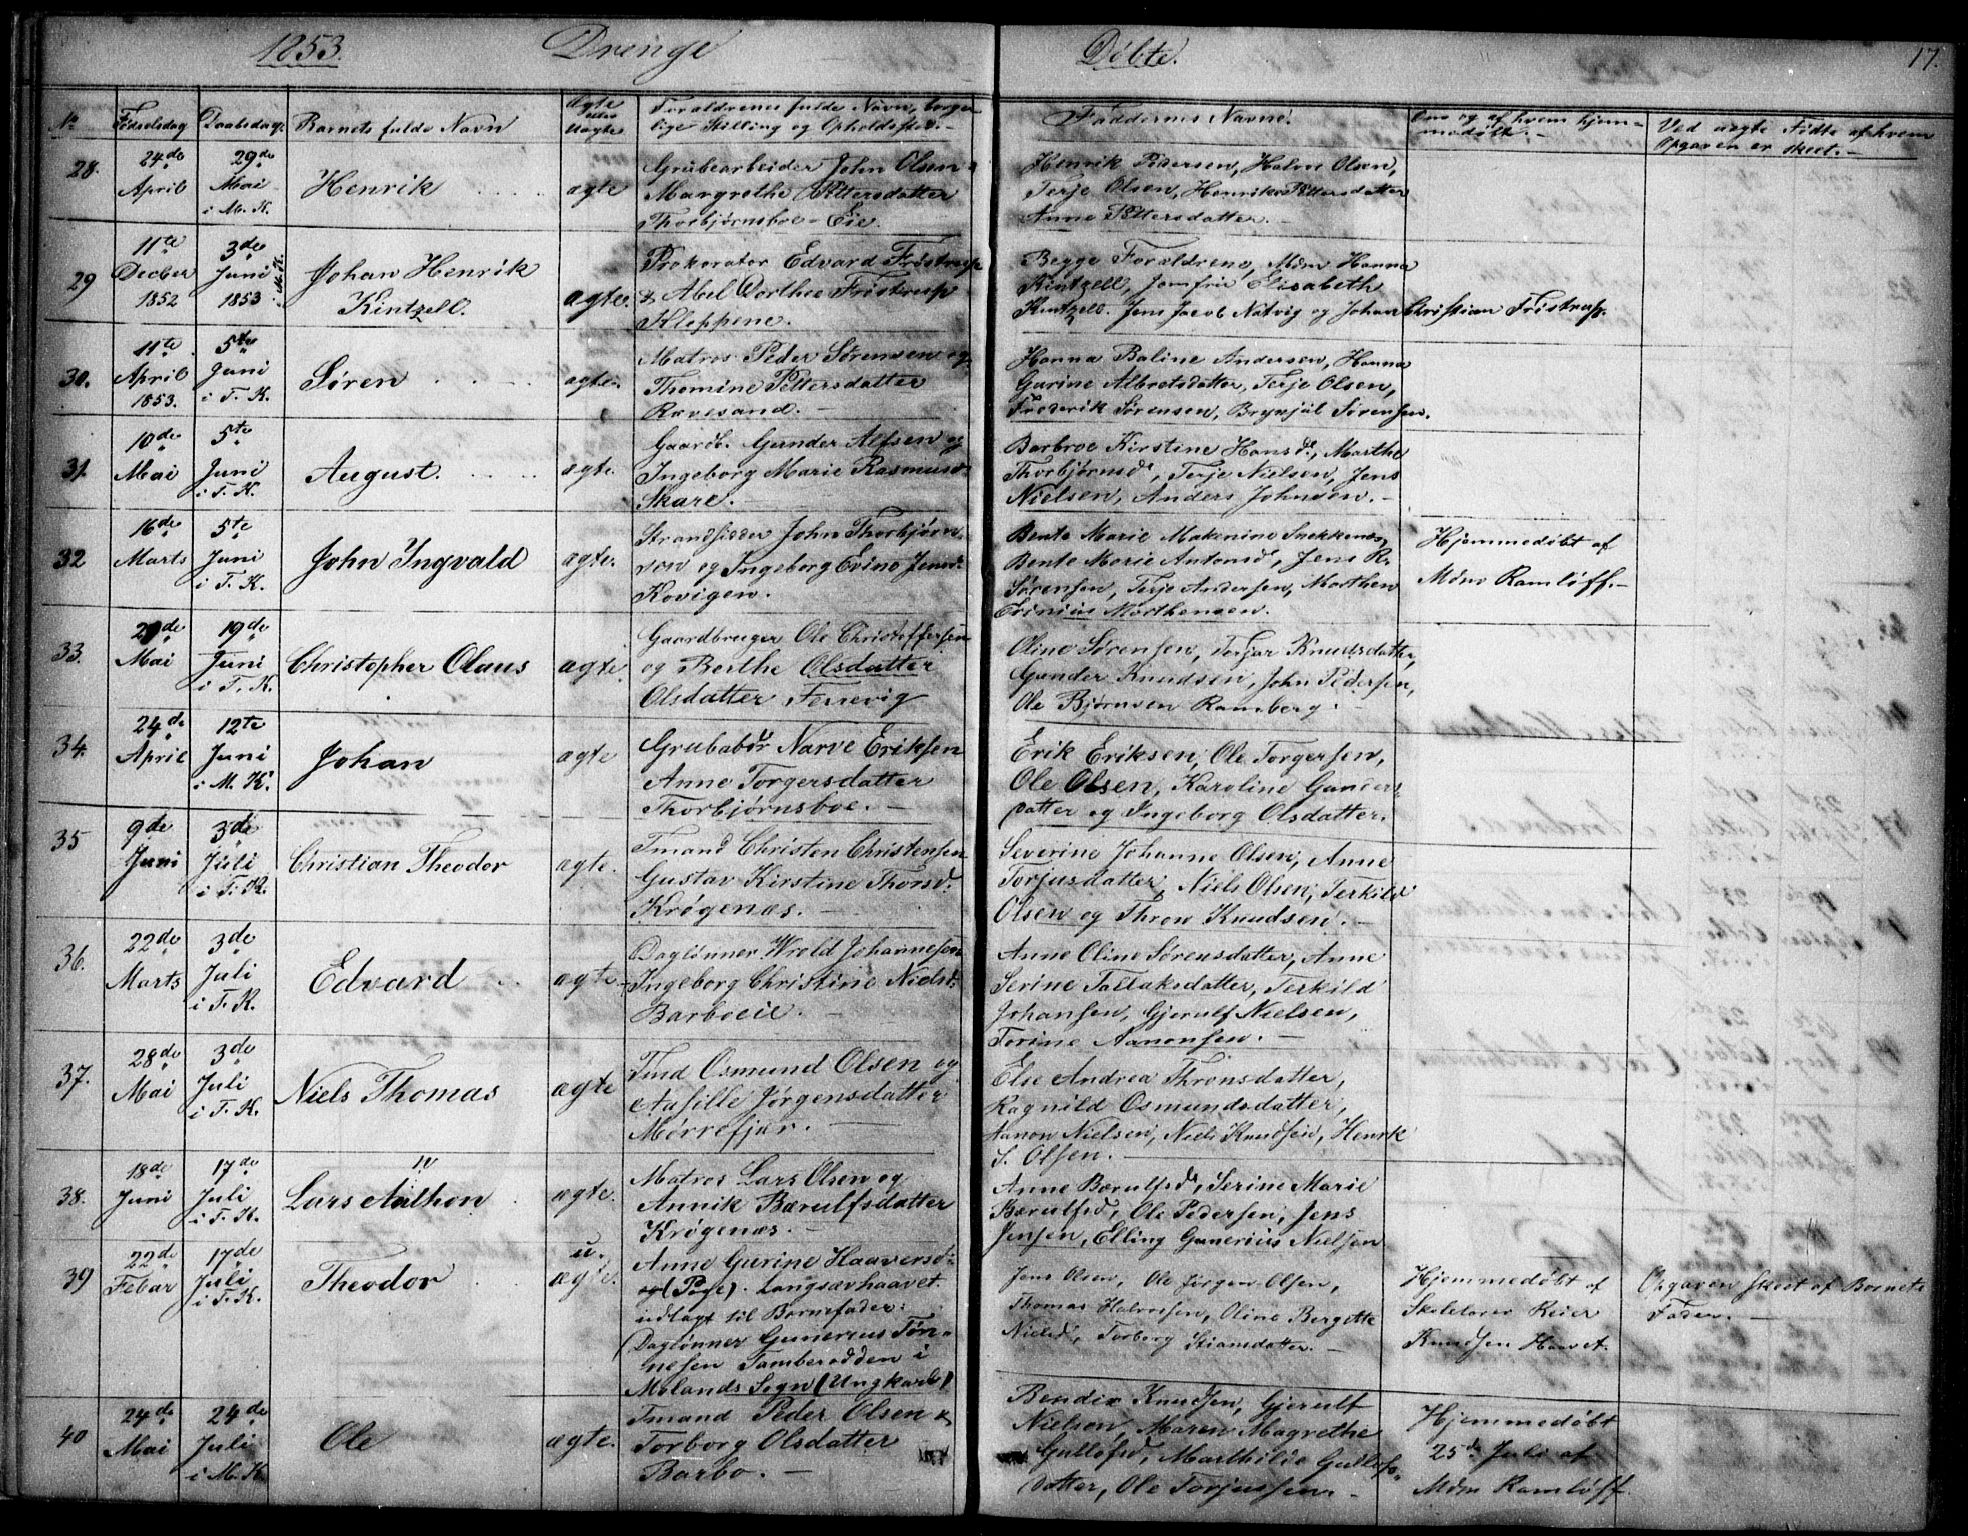 1853. Drenge Døbte. 17.
No Fødselsdag Daabsdag. Barnets fulde Navn ægte eller uægte Forældrenes fulde Navn, borger-
lige Stilling og Opholdssted.- Faddernes Navne. Om og af hvem hjem-
medøbt.- Ved uægte Fødte af hvem
Opgaven er skeet.-
28. 24de April 29de Mai i M. K. Henrik ægte
Grubearbeider John Olsen
Margrethe Pettersdatter
Thorbjørnsboe-Eie.
Henrik Pedersen, Halvor Olsen,
Terje Olsen, Henrikke Pettersdatter
Anne Pettersdatter.-
29 11te Decber 1852 3de Juni 1853 i M. K. Johan Henrik
Kintzell. ægte.
Prokurator Edvard Fristrup
& Abel Dorthee Fristrup
Kleppene.
Begge Forældrene, Mdm Hanna
Kintzell, Jomfrue Elisabeth
Kintzell. Jens Jacob Natvig og Johan Christian Fristrup.
30. 11te April 1853. 5te Juni i T. K. Søren ægte.
Matros Peder Sørensen og
Thomine Pettersdatter
Rævesand.-
Hanna Baline Andersen, Hanna
Gurine Albretsdatter, Terje Olsen,
Frederik Sørensen, Brynjül Sørensen.
31. 10de Mai 5te Juni i T. K. August. ægte.
Gaardb. Gunder Alfsen og
Ingeborg Marie Rasmusd.
Skare.-
Barbroe Kirstine Hansd., Marthe
Thorbjørnsd., Terje Nielsen, Jens
Nielsen, Anders Johnsen.-
32 16de Marts 5te Juni i T. K. John Ingvald ægte.
Strandsidder John Thorbjørn-
sen og Ingeborg Evine Jensd.
Kovigen.
Bente Marie Makenine Snekkenes,
Bente Marie Antonsd., Jens R.
Sørensen, Terje Andersen, Morthen
Erinius Morthensen.
Hjemmedøbt af
Mdm Ramløff.-
33. 29de Mai 19de Juni i T. K. Christopher Olaus ægte.
Gaardbruger Ole Christoffersen
og Berthe Olsdatter
Olsdatter Fenevig
Oline Sørensen, Torjar Knudsdatter,
Gunder Knudsen, John Pedersen,
Ole Bjørnsen Ramberg.
34. 24de April 12te Juni i M. K. Johan ægte
Grubabdr Narve Eriksen
Anne Torgersdatter
Thorbjørnsboe.-
Erik Eriksen, Ole Torgersen,
Ole Olsen, Karoline Gunders-
datter og Ingeborg Olsdatter.
35 9de Juni 3de Juli i T. K. Christian Theodor ægte.
Tmand Christen Christensen
Gustav Kirstine Thorsd.
Krøgenæs.-
Severine Johanne Olsen, Anne
Torjusdatter, Niels Olsen, Terkild
Olsen og Thron Knudsen.-
36. 22de Marts 3de Juli i T. K. Edvard ægte.
Daglønner Wrold Johannesen
Ingeborg Christine Nielsd.
Barboeie.-
Anne Oline Sørensdatter, Anne
Serine Tallaksdatter, Terkild
Johansen, Gjerulf Nielsen,
Torine Aanonsen.-
37. 28de Mai 3de Juli i T. K. Niels Thomas ægte
Tmd Osmund Olsen og
Aasille Jørgensdatter
Mørrefjær.-
Else Andrea Thronsdatter,
Ragnild Osmundsdatter,
Aanon Nielsen, Niels Knudsen, Henrik
S. Olsen.-
38. 18de Juni 17de Juli i T. K. Lars Aalthon ægte.
Matros Lars Olsen og
Annik Bærulfsdatter
Krøgenæs.-
Anne Bærulfsd., Serine Marie
Bærulfsd., Ole Pedersen, Jens
Jensen, Elling Gunerius Nielsen
39 22de Febar 17de Juli i T. K. Theodor u. ægte.
Anne Gurine Haaversd.
og (Pige). Langsævhaavet
udlagt til Barnefader:
(Daglønner Gunerius Tøn-
nesen Tamberodden i
Molands Sogn (Ungkarl)
Jens Olsen, Ole Jørgen Olsen,
Thomas Halvorsen, Oline Bergette
Nielsd., Torborg Stiansdatter.-
Hjemmedøbt af
Skolelærer Reier
Knudsen Haavet.
Opgaven skeet af Barnets
Fader.-
40 24de Mai 24de Juli i M. K. Ole ægte.
Tmand Peder Olsen &
Torborg Olsdatter
Barbo.-
Bendix Knudsen, Gjerulf
Nielsen, Maren Magrethe
Gullefsd., Marthilde Gullefs-
datter, Ole Torjussen.-
Hjemmedøbt
25de Juli af
Mdm Ramløff